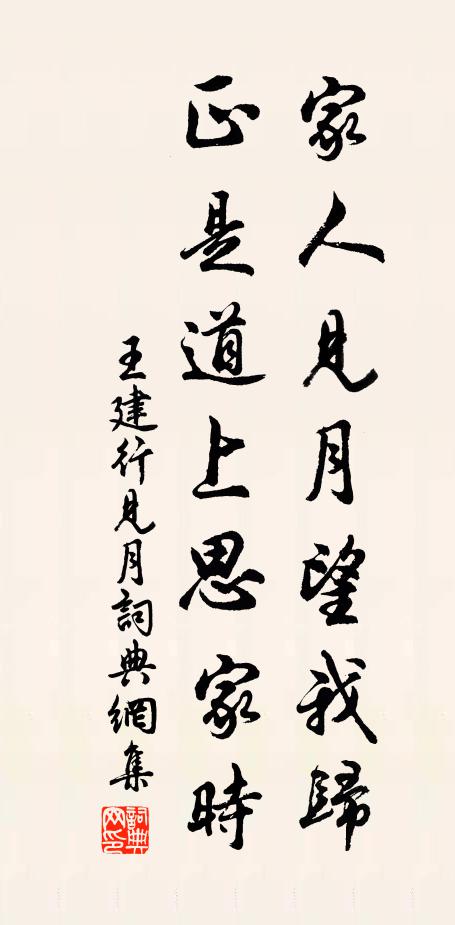 家人見月望我歸
正是道上思家時
王建行見月詞典網集
詞典網印